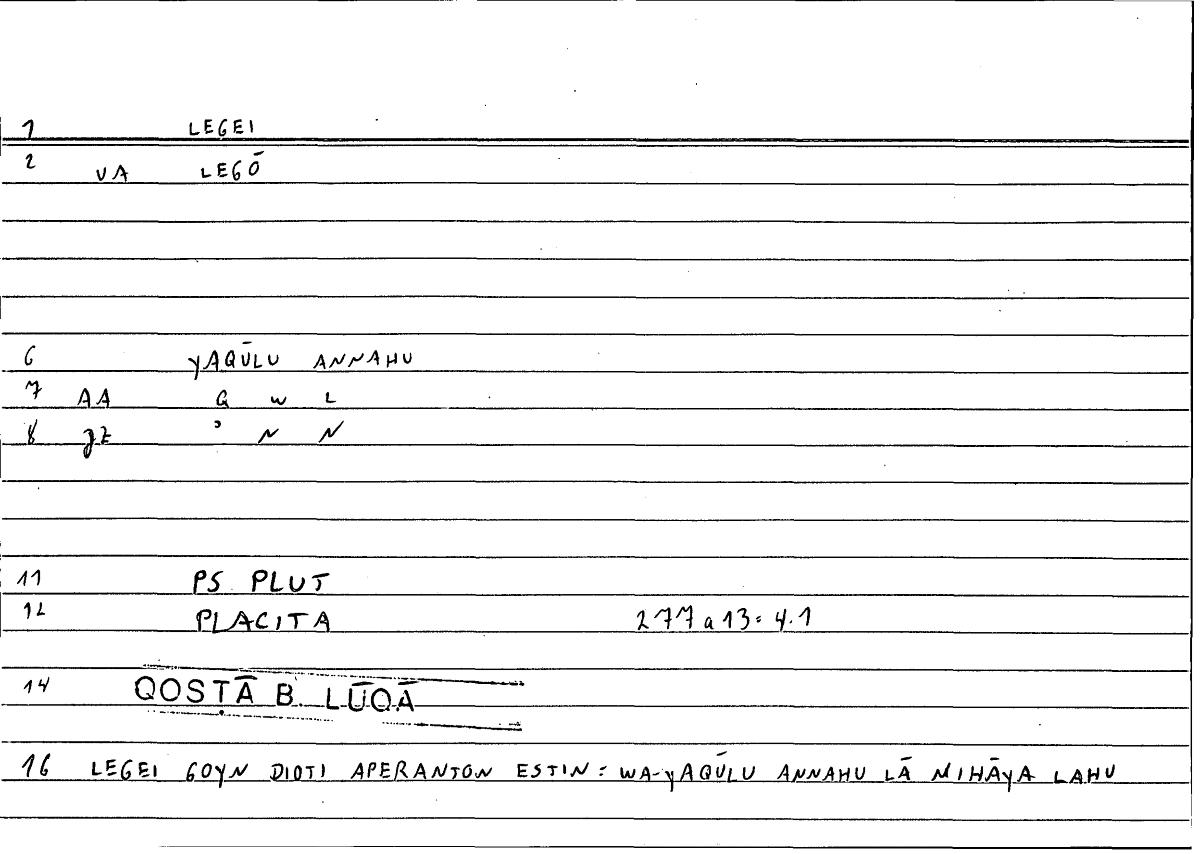 1 LEGEI
2 VA LEGŌ
6 YAQŪLU ANNAHU
7 AA Q W L
8 gz ʾ N N
11 PS PLUT
12 PLACITA 277a13=4.1
14 QOSṬĀ B. LŪQĀ
16 LEGEI GOYN DIOTI APERANTON ESTIN = WA-YAQŪLU ANNAHU LĀ NIHĀYA LAHU